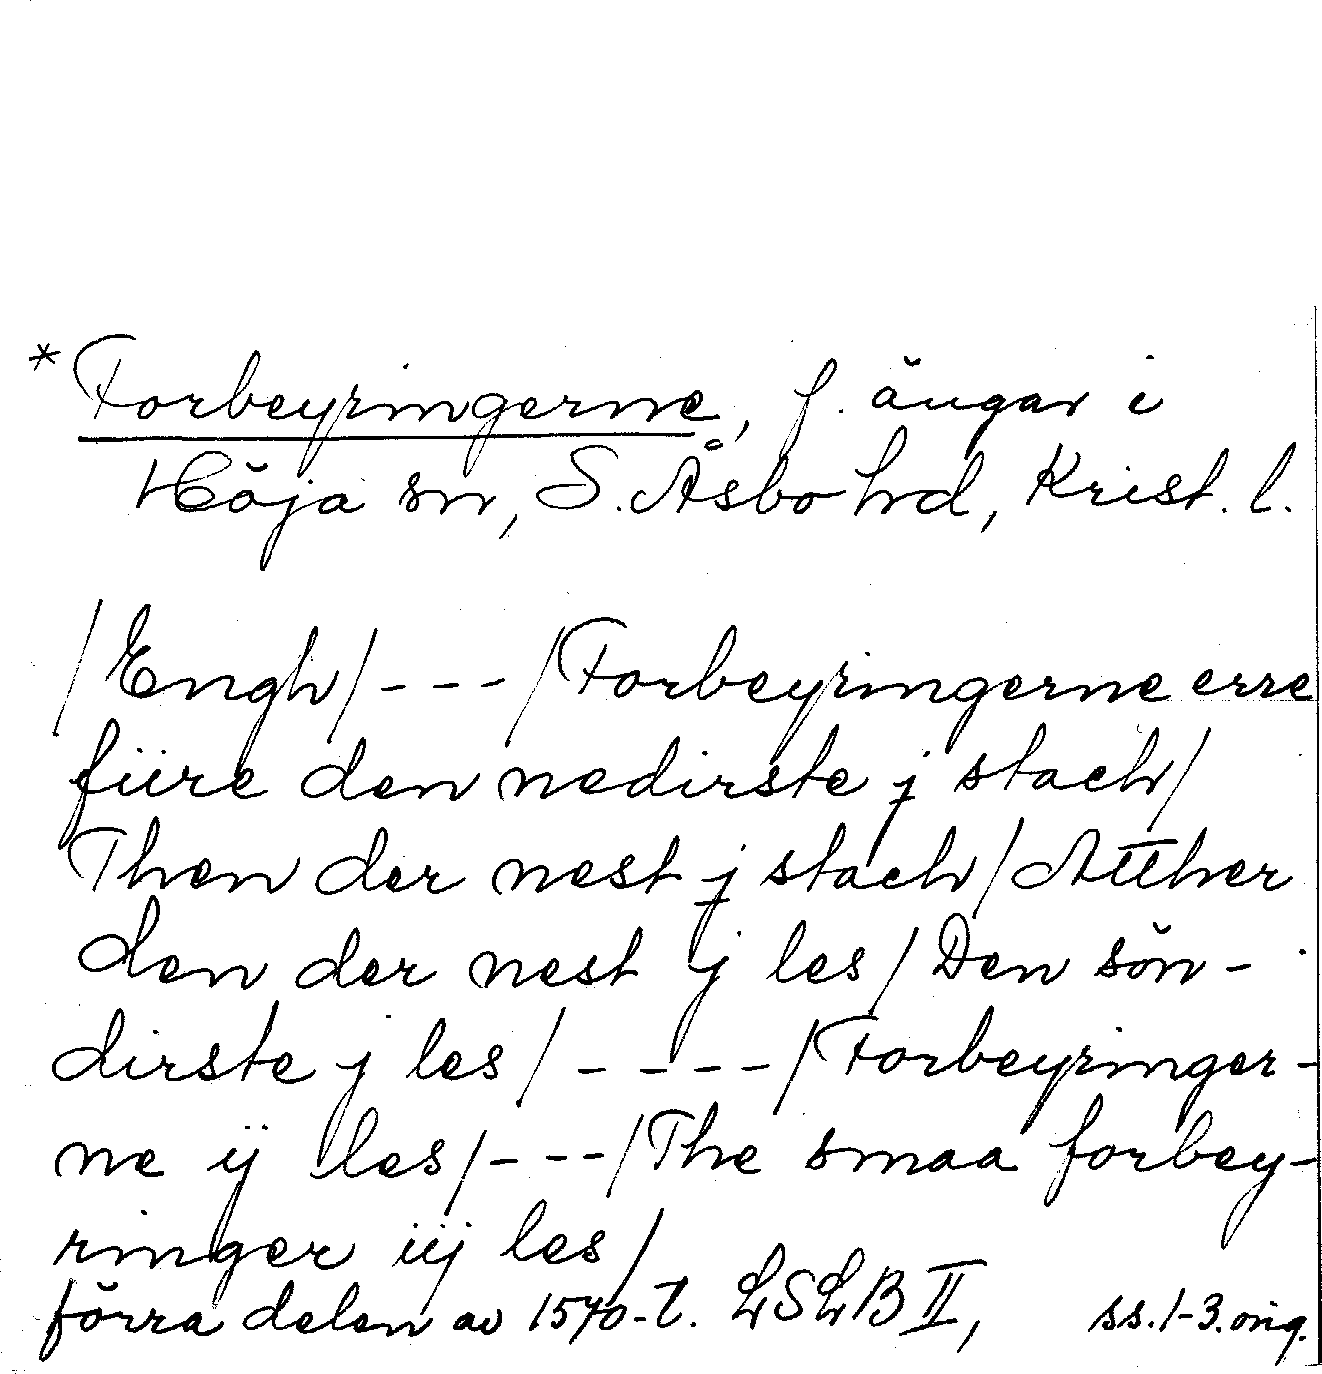 *Forbeyringerne, f. ängar i
Höja sn, S. Åsbo hd, Krist. l.
/Engh/---/Forbeyringerne erre
fiire den nedirste j stach/
Then der nest j stach/Atther
den der nest ij les/Den sön-
dirste j les/----/Forbeyringer-
ne ij les/---/The smaa forbey-
ringer iij les/
förra delen av 1570-t. LSLB II, ss. 1-3. orig.